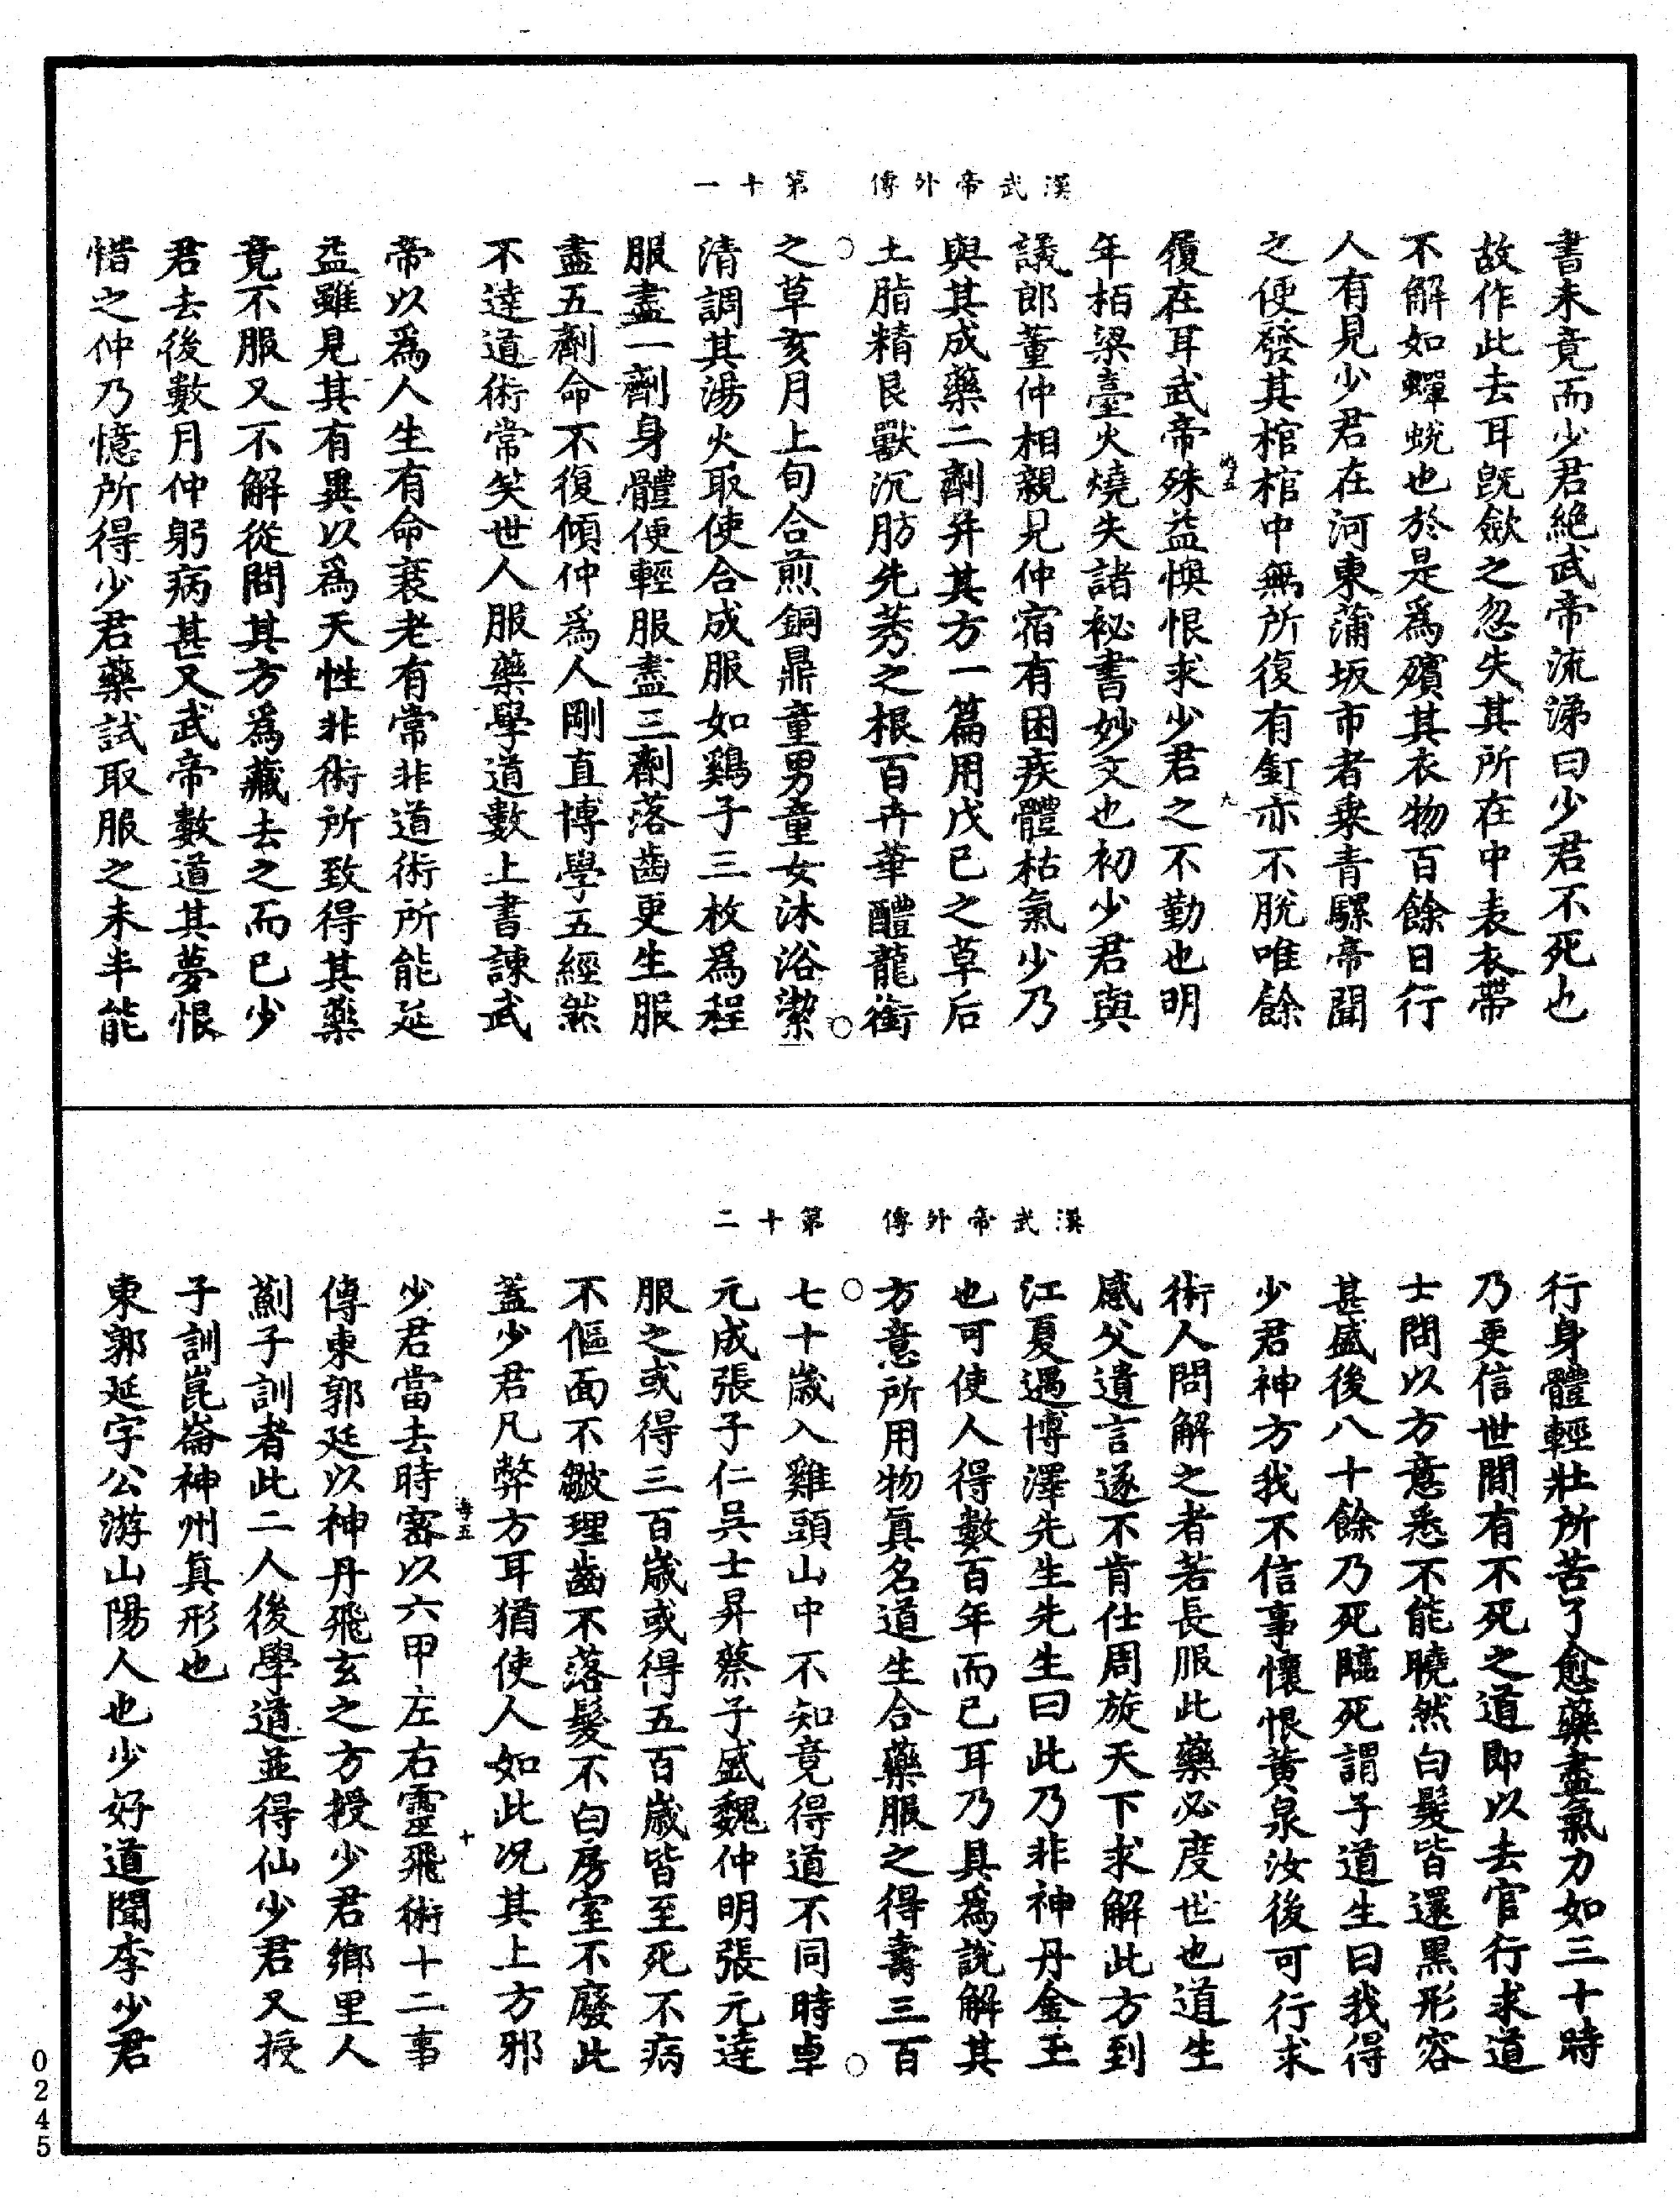 漢武帝外傳　第十一
書未竟而少君絕武帝流涕曰少君不死也
故作此去耳旣斂之忽失其所在中表衣帶
不解如蟬蛻也於是爲殯其衣物百餘日行
人有見少君在河東蒲坂市者乗青騾帝聞
之便發其棺棺中無所復有釘亦不脫唯餘
海五　九
履在耳武帝殊益懊恨求少君之不勤也明
年柏梁臺火燒失諸祕書妙文也初少君與
議郎董仲相親見仲宿有困疾體枯氣少乃
與其成藥二劑并其方一篇用戊巳之草后
土脂精艮獸沉肪先莠之根百卉華醴龍銜
之草亥月上旬合煎銅鼎童男童女沐浴潔
清調其湯火取使合成服如鷄子三枚爲程
服盡一劑身體便輕服盡三劑落齒更生服
盡五劑命不復傾仲爲人剛直博學五經然
不達道術常笑世人服藥學道數上書諫武
帝以爲人生有命衰老有常非道術所能延
益雖見其有異以爲天性非術所致得其藥
竟不服又不解從問其方爲藏去之而巳少
君去後數月仲躬病甚又武帝數道其夢恨
惜之仲乃憶所得少君藥試取服之未半能
漢武帝外傳　第十二
行身體輕壯所苦了愈藥盡氣力如三十時
乃更信世間有不死之道即以去官行求道
士問以方意悉不能曉然白髮皆還黑形容
甚盛後八十餘乃死臨死謂子道生曰我得
少君神方我不信事懷恨黃泉汝後可行求
術人問解之者若長服此藥必度世也道生
感父遺言遂不肯仕周旋天下求解此方到
江夏遇博澤先生先生曰此乃非神丹金玉
也可使人得數百年而巳耳乃具爲說解其
方意所用物眞名道生合藥服之得壽三百
七十歲入雞頭山中不知竟得道不同時卓
元成張子仁吳士昇蔡子盛魏仲明張元達
服之或得三百歲或得五百歲皆至死不病
不傴面不皺理齒不落髮不白房室不廢此
蓋少君凡弊方耳猶使人如此况其上方邪
海五　十
少君當去時密以六甲左右靈飛術十二事
傳東郭延以神丹飛玄之方授少君鄉里人
薊子訓者此二人後學道並得仙少君又授
子訓崑崙神州眞形也
東郭延字公游山陽人也少好道聞李少君
0245